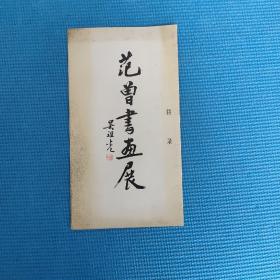 范曾書画展
吴祖光
目录